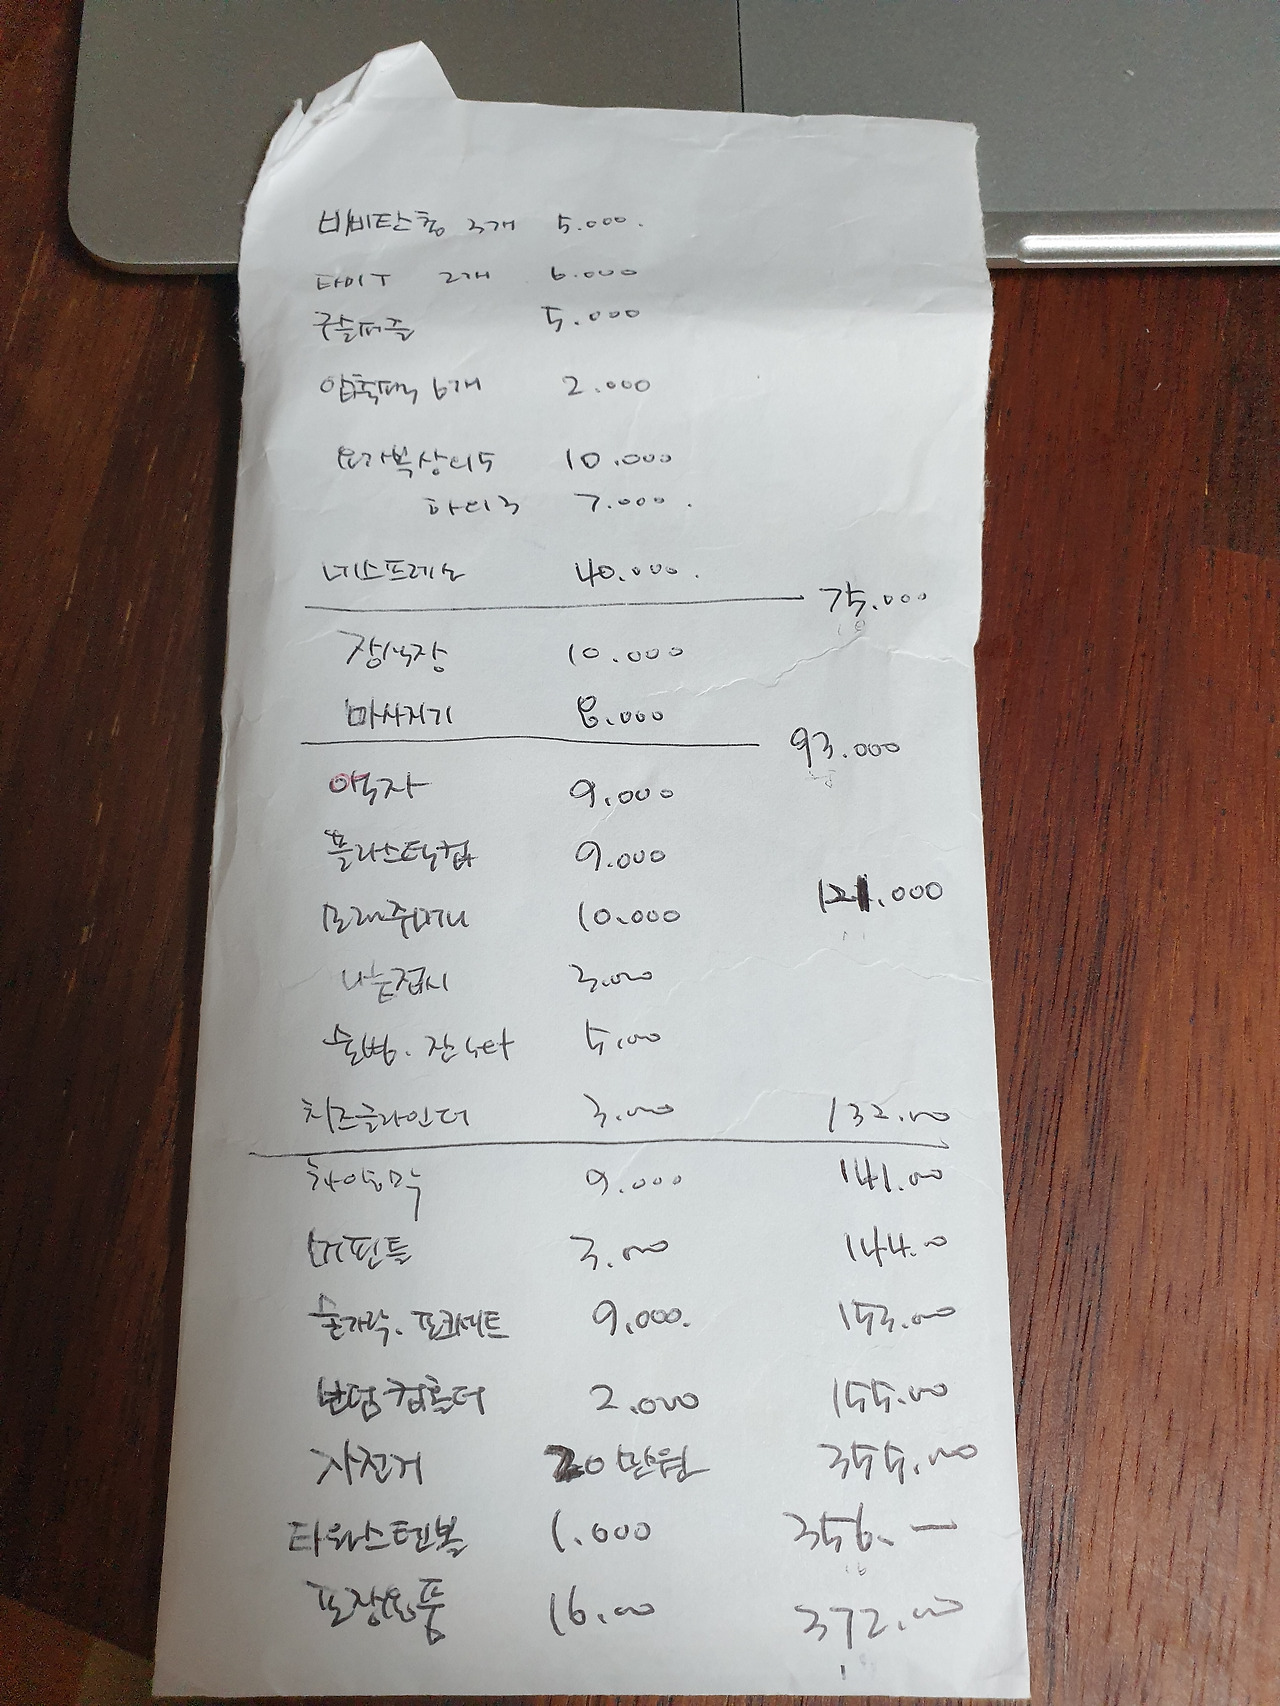 비비탄총 3개 5.000.
타이어 2개 6.000
구슬퍼즐 5.000
압축팩 6개 2.000
요가복상의5 10.000
하의3 7.000.
네스프레소 40.000.
75.000
장식장 10.000
마사지기 8.000
93.000
액자 9.000
플라스틱컵 9.000
121.000
모래주머니 10.000
나눔접시 3.000
술병. 잔세트 5.000
치즈글라인더 3.000 132.000
차양막 9.000 141.000
머핀틀 3.000 144.00
숟가락. 포크세트 9.000. 153.000
보덤컵홀더 2.000 155.000
자전거 20만원 355.000
타원스텐볼 1.000 356.—
포장용품 16.000 372.000